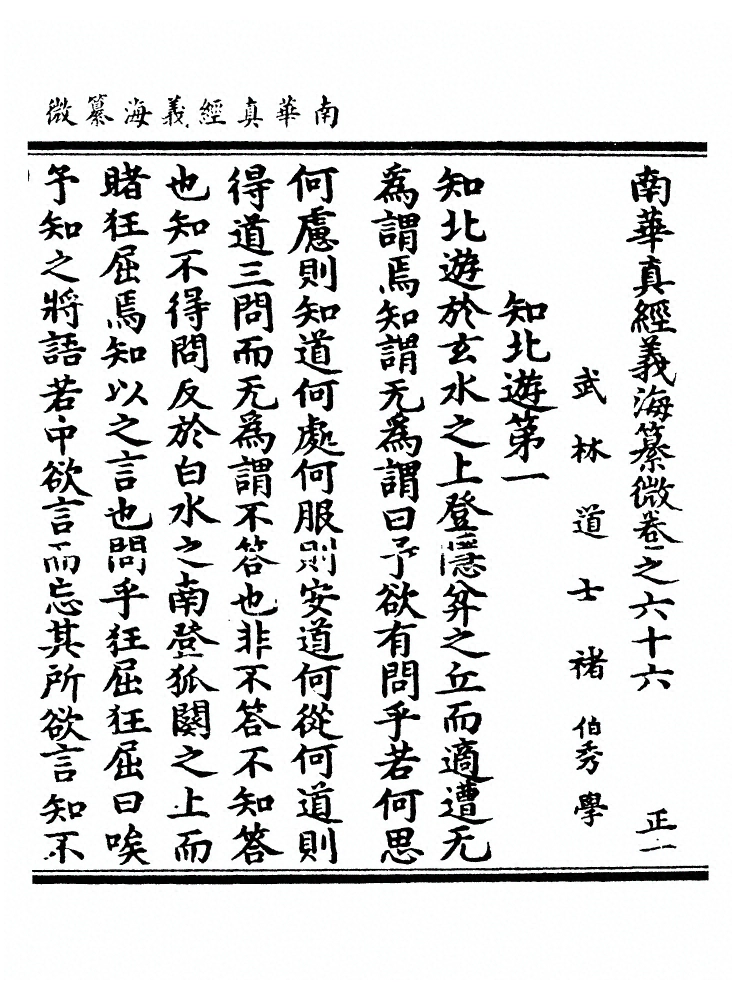 南華真經義海纂微
南華真經義海纂微卷之六十六 正一
武林道士褚伯秀學
知北遊第一
知北遊於玄水之上登隱弅之丘而適遭无
爲謂焉知謂无爲謂曰予欲有問乎若何思
何慮則知道何處何服則安道何從何道則
得道三問而无爲謂不答也非不答不知答
也知不得問反於白水之南登狐闋之上而
睹狂屈焉知以之言也問乎狂屈狂屈曰唉
予知之將語若中欲言而忘其所欲言知不